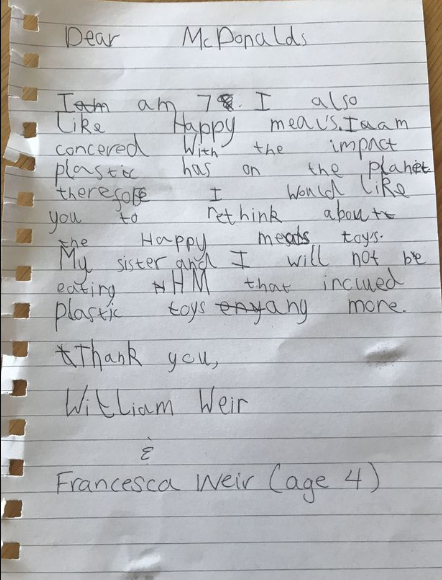 Dear McDonalds
I am am 7. I also
like Happy meals. I am
concered with the impact
plastic has on the planet
therefore I would like
you to rethink about
the Happy meals toys.
My sister and I will not be
eating HM that inclued
plastic toys any more.
Thank you,
William Weir
&
Francesca Weir (age 4)